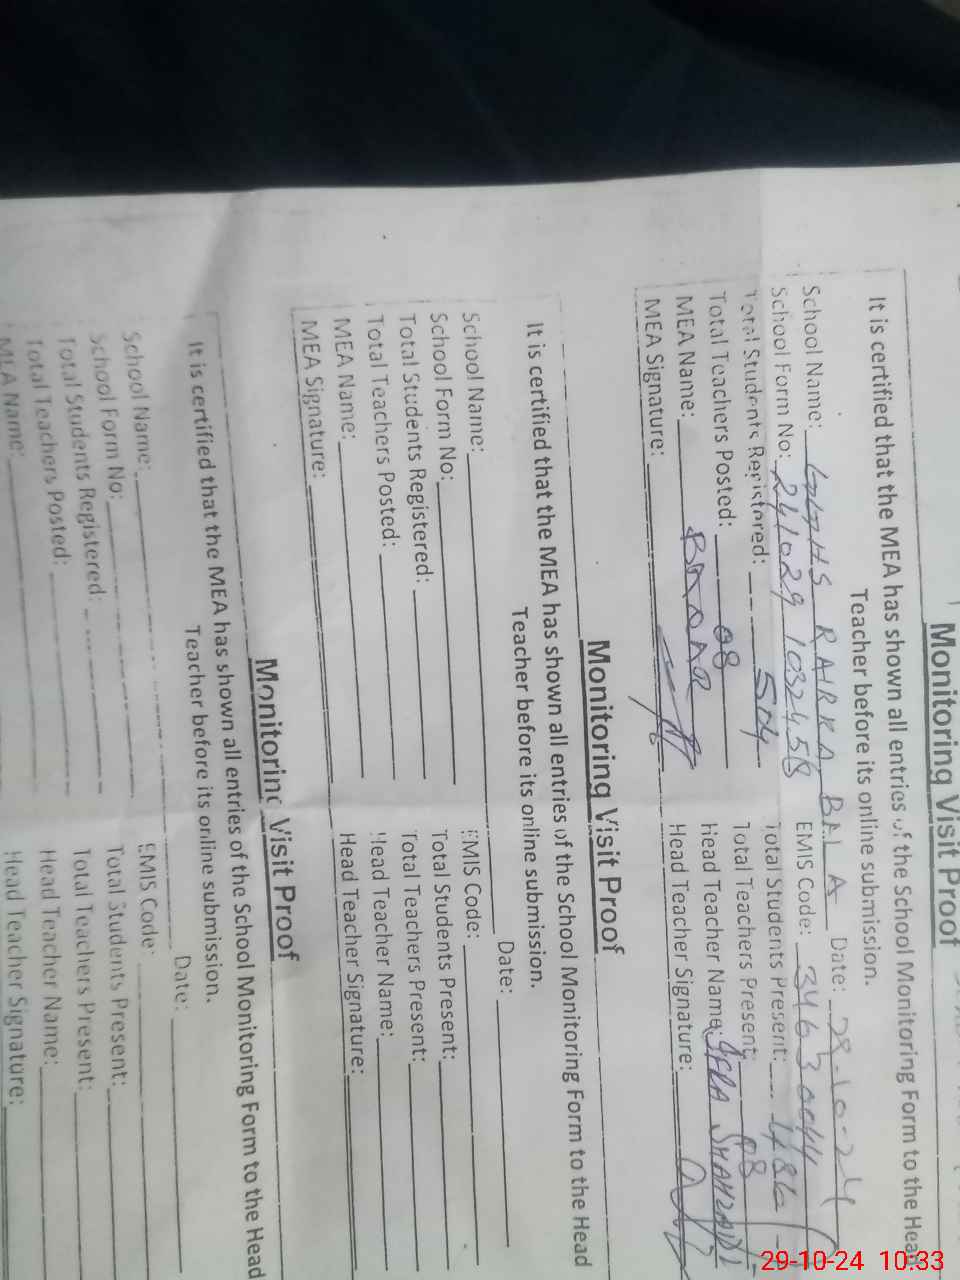 Monitoring Visit Proof
It is certified that the MEA has shown all entries of the School Monitoring Form to the Head
Teacher before its online submission.
School Name: GGHS RAIRKA BALA Date: 28-10-24
School Form No: 241029 1032458 EMIS Code: 34630044
Total Students Registered: 504 Total Students Present: 486
Total Teachers Posted: 08 Total Teachers Present: 08
MEA Name: Head Teacher Name:
MEA Signature: Head Teacher Signature:
Monitoring Visit Proof
It is certified that the MEA has shown all entries of the School Monitoring Form to the Head
Teacher before its online submission.
School Name: Date:
School Form No: EMIS Code:
Total Students Registered: Total Students Present:
Total Teachers Posted: Total Teachers Present:
MEA Name: Head Teacher Name:
MEA Signature: Head Teacher Signature:
Monitoring Visit Proof
It is certified that the MEA has shown all entries of the School Monitoring Form to the Head
Teacher before its online submission.
Date:
School Name: EMIS Code:
School Form No: Total Students Present:
Total Students Registered: Total Teachers Present:
Total Teachers Posted: Head Teacher Name:
MEA Name: Head Teacher Signature:
29-10-24 10:33